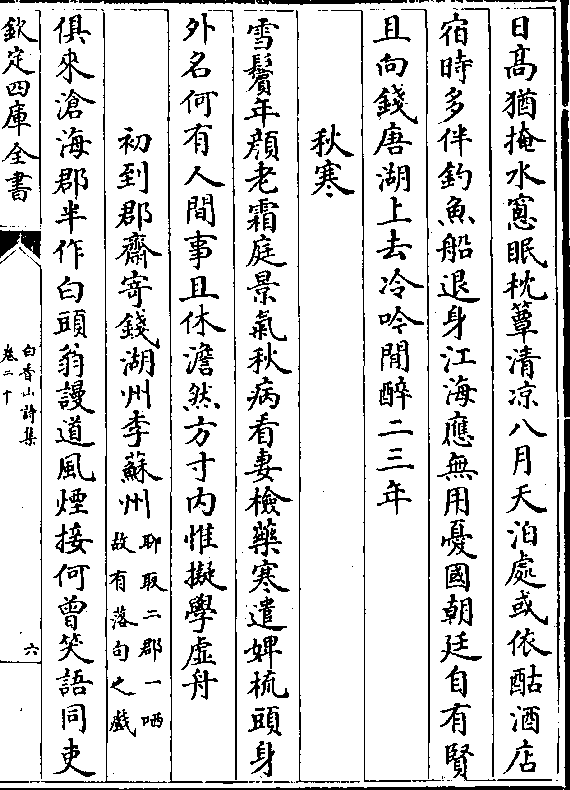 日高猶掩水窻眠枕簟清凉八月天泊處或依酤酒店
宿時多伴釣魚船退身江海應無用憂國朝廷自有賢
且向錢唐湖上去冷吟閒醉二三年
秋寒
雪鬢年顔老霜庭景氣秋病看妻檢藥寒遣婢梳頭身
外名何有人間事且休澹然方寸内惟擬學虛舟
初到郡齋寄錢湖州李蘇州
聊取二郡一哂
故有落句之戲
俱來滄海郡半作白頭翁謾道風煙接何曾笑語同吏
欽定四庫全書
白香山詩集
卷二十
六